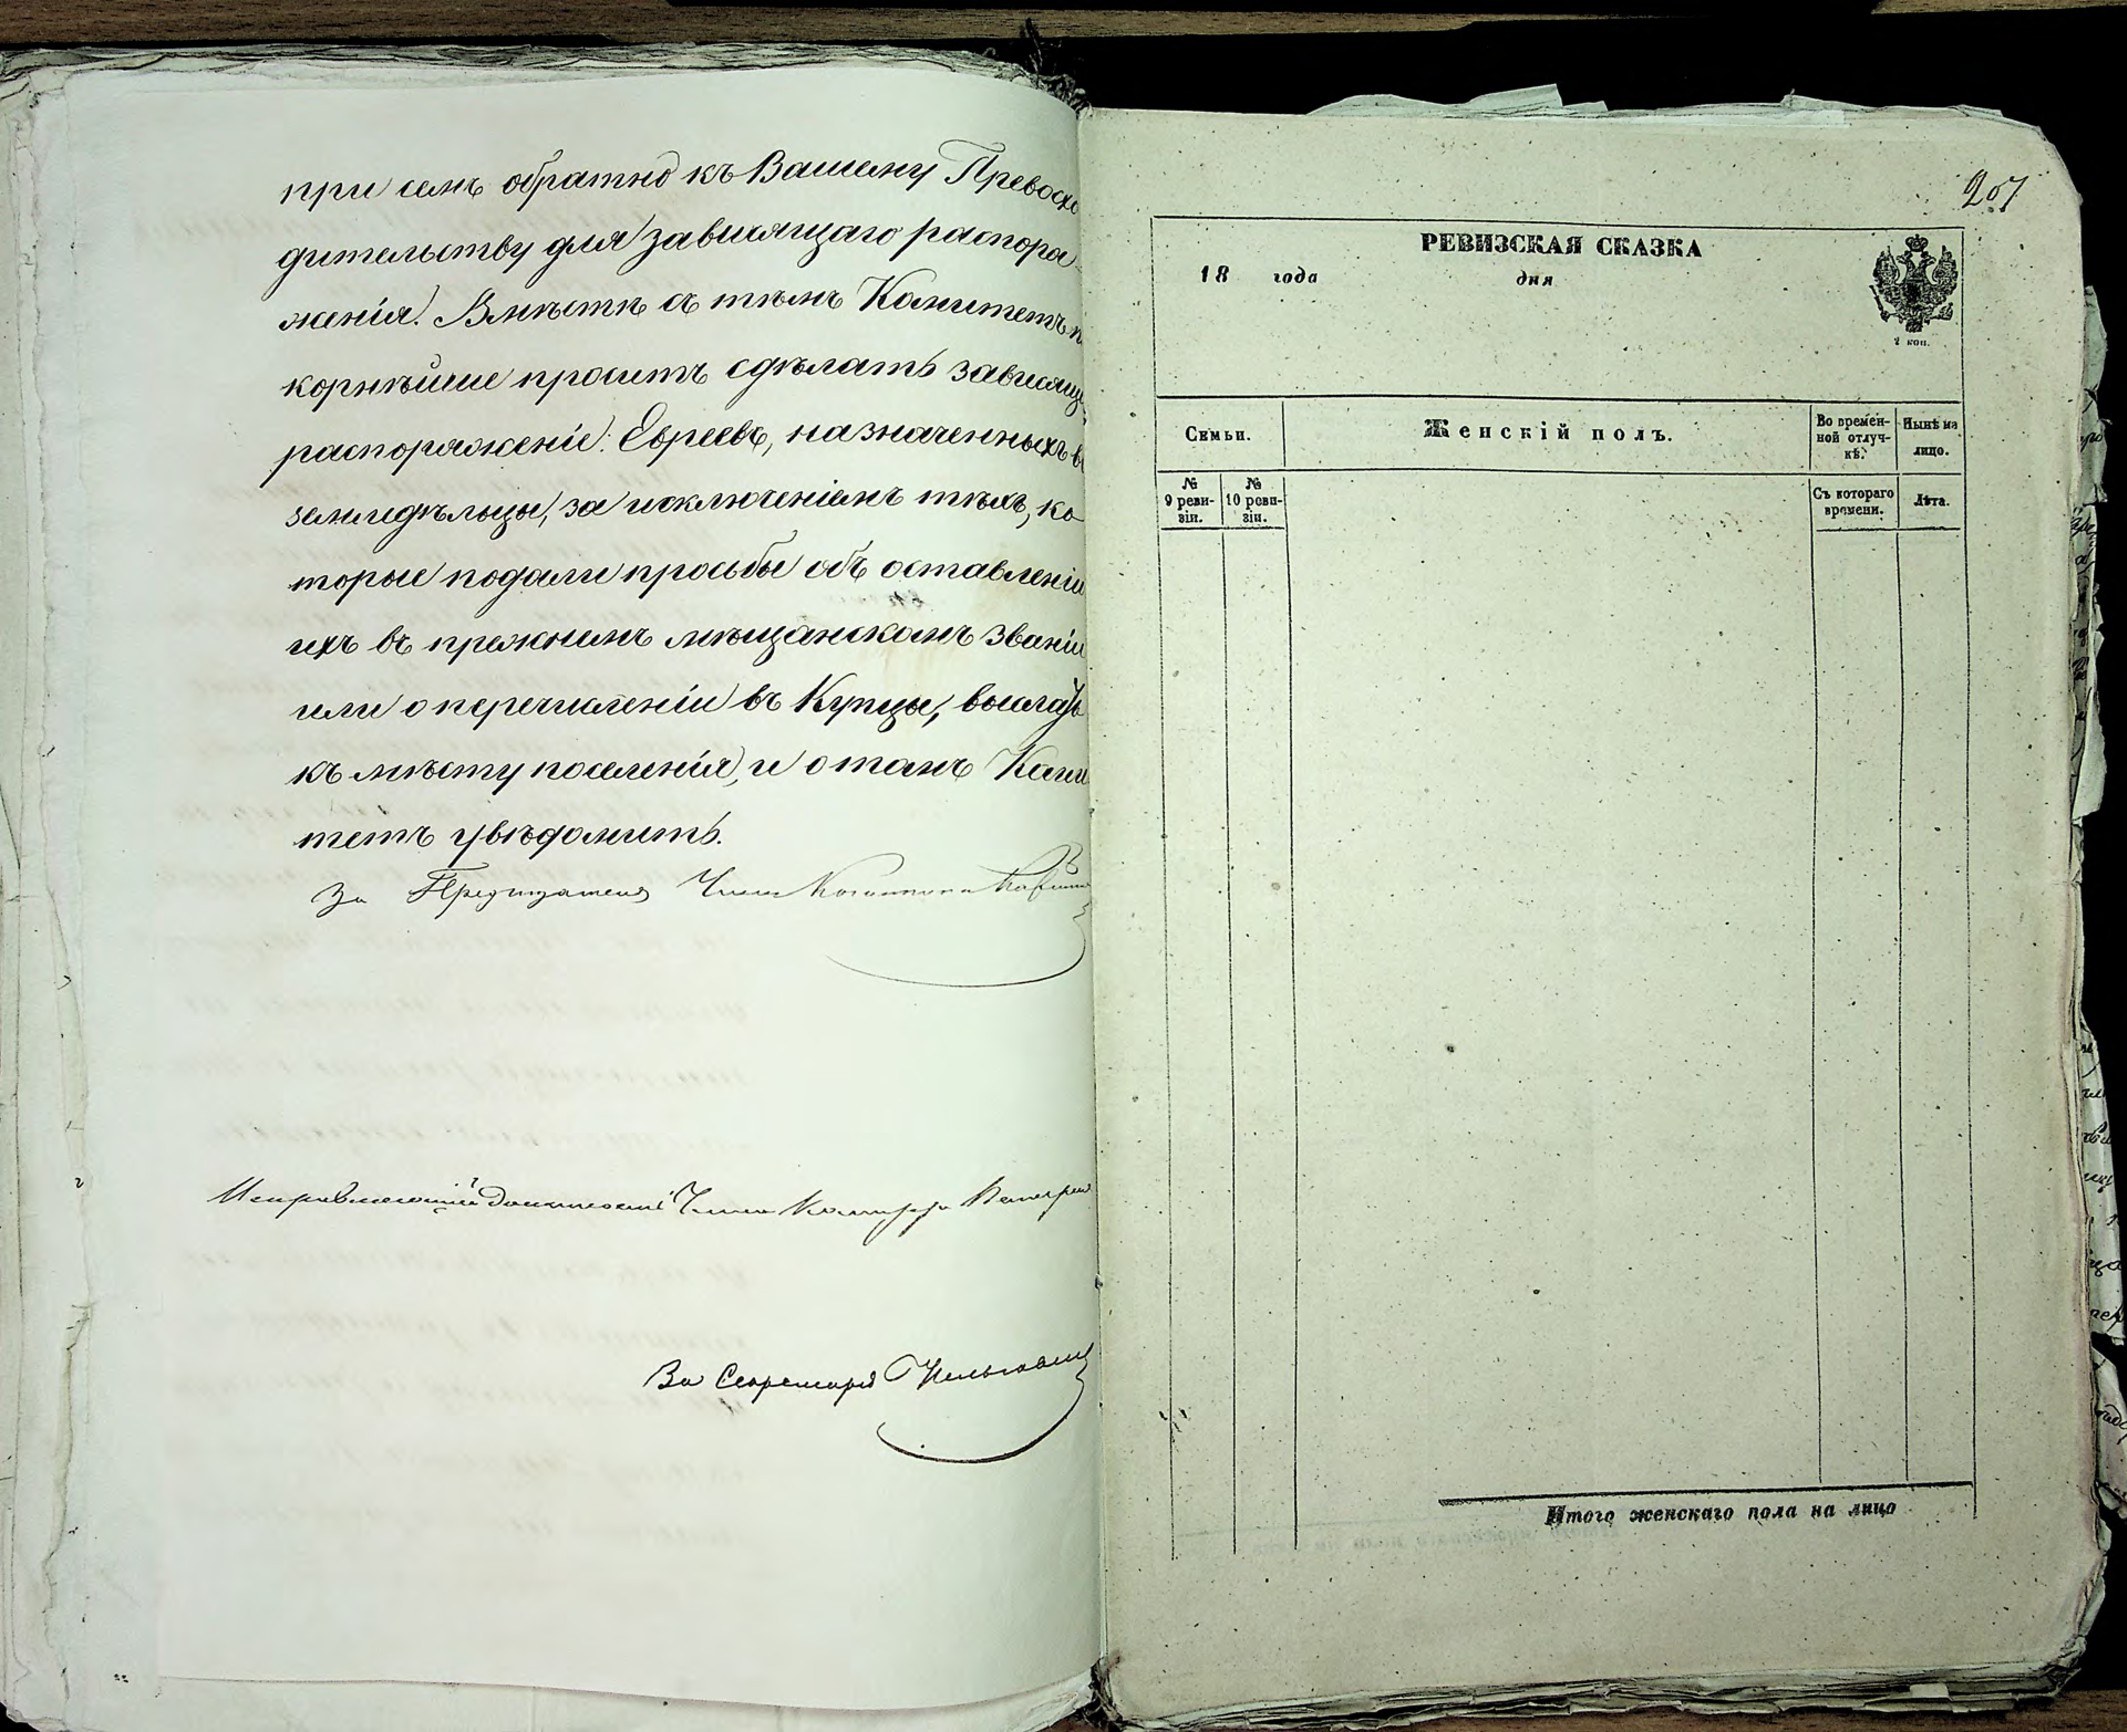 при семъ обратно къ Вашему Превосхо
дительству для зависящаго распоря-
женія. Вместѣ съ тѣмъ Комитетъ п
корнѣйше проситъ сдѣлать зависяще
распоряженіе: Евреевъ, назначенныхъ в
земледѣльцы, за исключеніемъ тѣхъ, ко
торые подали просьбы объ оставленіи
ихъ въ прежнемъ мѣщанскомъ званіи
или о перечисленіи въ Купцы, выслать
къ мѣсту поселенія, и о томъ Коми
тетъ увѣдомить.
За Предсѣдателя Членъ
Исправляющій должность Члена
За Секретаря
207
РЕВИЗСКАЯ СКАЗКА
18 года дня
2 коп.
Семьи.
Женскій полъ.
Во времен-
ной отлуч-
кѣ.
Нынѣ на
лицо.
№
9 реви-
зіи.
№
10 реви-
зіи.
Съ котораго
времени.
Лѣта.
Итого женскаго пола на лицо